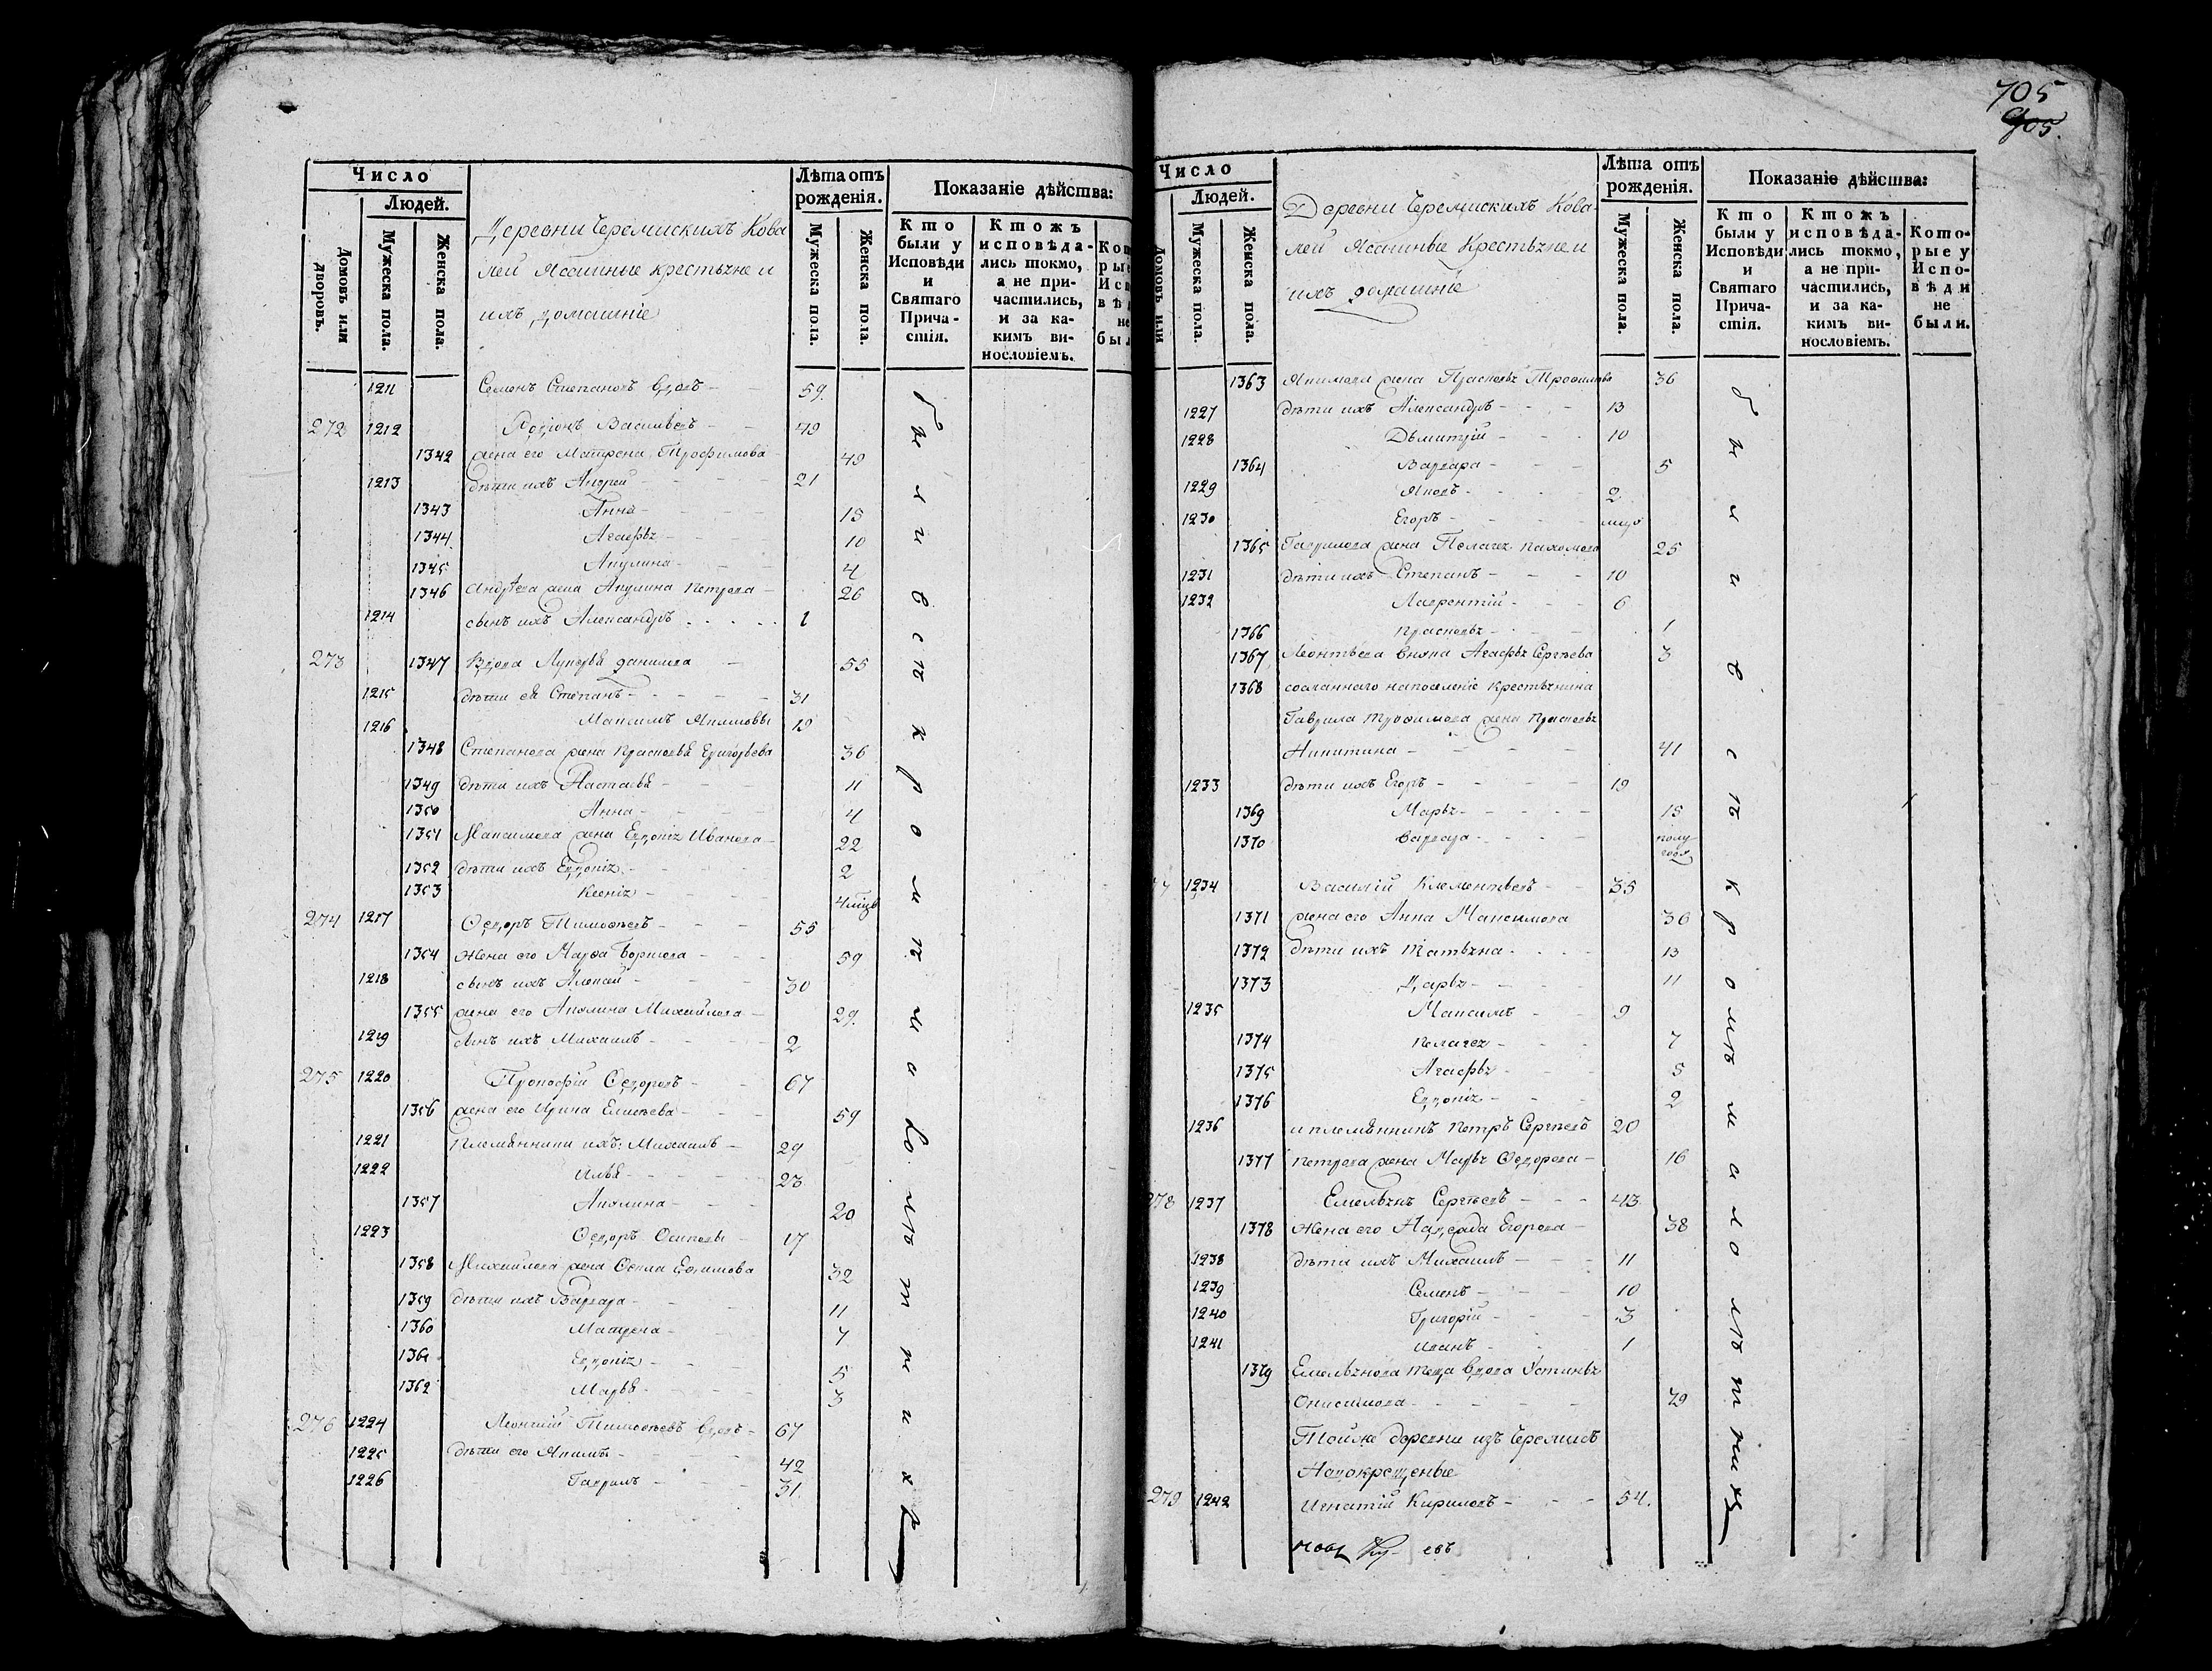 Число
Людей.
Домовъ или дворовъ.
Мужеска пола.
Женска пола.
Деревни Черемискихъ Кова
лей Ясашные крестьяне и
ихъ домашніе
Лѣта отъ
рожденія.
Мужеска пола.
Женска пола.
Показаніе дѣйства:
Кто были у Исповѣди и Святаго Прича-стія.
Ктожъ исповѣда-лись токмо, а не при-частились, и за ка-кимъ ви-нословіемъ.
1211 Семенъ Степановъ вдовъ - 59.
272 1212 Родіонъ Васильевъ - 49
1342 жена его Матрена Трофимова 49
1213 дѣти ихъ Андрей - 21
1343 Анна - 15
1344 Агафья - 10
1345 Акулина - 4
1346 Андрѣева жена Акулина Петрова - 26
1214 сынъ ихъ Александръ - 1
273 1347 Вдова Лукерья Данилова - 55
1215 дѣти ея Степанъ - 31
1216 Максимъ Якимовы 19
1348 Степанова жена Прасковья Григорьева 36
1349 дѣти ихъ Настасья - 11
1350 Анна - 4
1351 Максимова жена Евдокія Иванова - 22
1352 дѣти ихъ Евдокія - 2
1353 Ксенія - 4 мцв
274 1217 Ѳедоръ Тимоѳеевъ - 55
1354 Жена его Марѳа Борисова - 59
1218 сынъ ихъ Алексей - 30
1355 жена его Акилина Михайлова - 29.
1219 сынъ ихъ Михаилъ - 2
275 1220 Прокофій Ѳедоровъ - 67
1356 жена его Ирина Елисѣева - 59
1221 Племянники ихъ: Михаилъ - 29
1222 Илья - 23
1357 Акилина - 20
1223 Ѳедоръ Осиповы - 17
1358 Михайлова жена Ѳекла Ефимова 32
1359 дѣти ихъ Варвара - 11
1360 Матрена - 7
1361 Евдокія - 5
1362 Марья - 3
276 1224 Леонтій Тимоѳеевъ вдовъ - 67
1225 дѣти его Якимъ - 42
1226 Гаврилъ - 31.
705
905.
Число
Людей.
Домовъ или
Мужеска пола.
Женска пола.
Деревни Черемискихъ Кова-
лей Ясашные Крестьяне и
ихъ домашніе
Лѣта отъ
рожденія.
Мужеска пола.
Женска пола.
Показаніе дѣйства:
Кто были у Исповѣди и Святаго Прича-стія.
Ктожъ исповѣда-лись токмо, а не при-частились, и за ка-кимъ ви-нословіемъ.
Кото-рые у Испо-вѣди не были.
1363 Якимова жена Прасковья Трофимова 36
1227 дѣти ихъ Александръ - 13
1228 Дьмитрій - 10
1364 Варвара - 5
1229 Яковъ - 2
1230 Егоръ -
1365 Гаврилова жена Пелагея Пахомова 25
1231 дѣти ихъ Степанъ - 10
1232 Лаврентій - 6
1366 Прасковья - 1
1367 Леонтьева внука Агафья Сергѣева 3
1368 сосланнаго на поселеніе крестьянина
Гаврила Трофимова жена Прасковья
Никитина - 41
1233 дѣти ихъ Егоръ - 19
1369 Марья - 15
1370 Варвара - полу года
1234 Василій Клементьевъ - 35
1371 жена его Анна Максимова 36
1372 дѣти ихъ Татьяна - 13
1373 Дарья - 11
1235 Максимъ - 9
1374 Пелагея - 7
1375 Агафья - 5
1376 Евдокія - 2
1236 и племянникъ Петръ Сергѣевъ 20
1377 Петрова жена Марья Ѳедорова - 16
278 1237 Емельянъ Сергѣевъ - 43
1378 Жена его Надежда Егорова - 38
1238 дѣти ихъ Михаилъ - 11
1239 Семенъ - 10
1240 Григорій - 3
1241 Иванъ - 1
1379 Емельянова теща вдова Устинья
Онисимова - 79
Тойже деревни изъ Черемисъ
Новокрещеные
279 1242 Игнатій Кириловъ - 54.
бы ли всѣ кромѣ малолѣтнихъ
бы ли всѣ кромѣ малолѣтнихъ